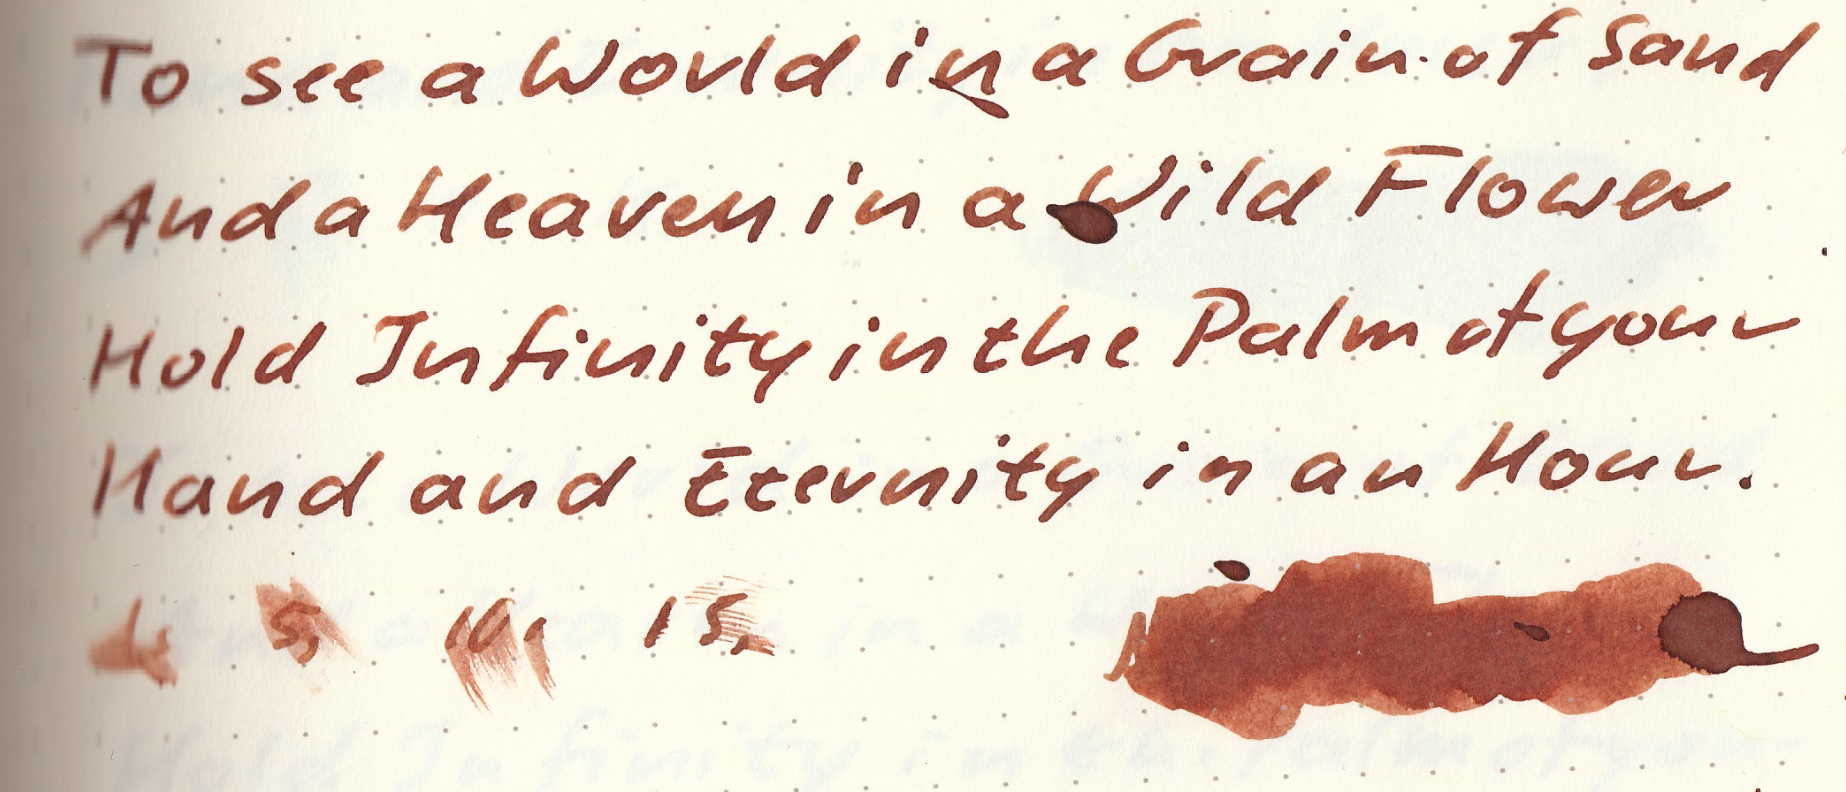 To see a World in a Grain of Sand
And a Heaven in a Wild Flower
Hold Infinity in the Palm of your
Hand and Eternity in an Hour.
1. 5. 10. 15.